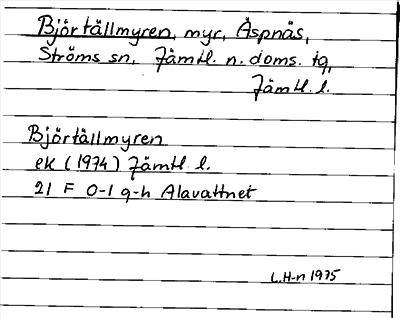 Björtållmyren, myr, Äspnäs,
Ströms sn, Jämtl. n. doms. tg,
Jämtl. l.
Björtållmyren
ek (1974) Jämtl. l.
21 F 0-1 g-h Alavattnet
L.H-n 1975